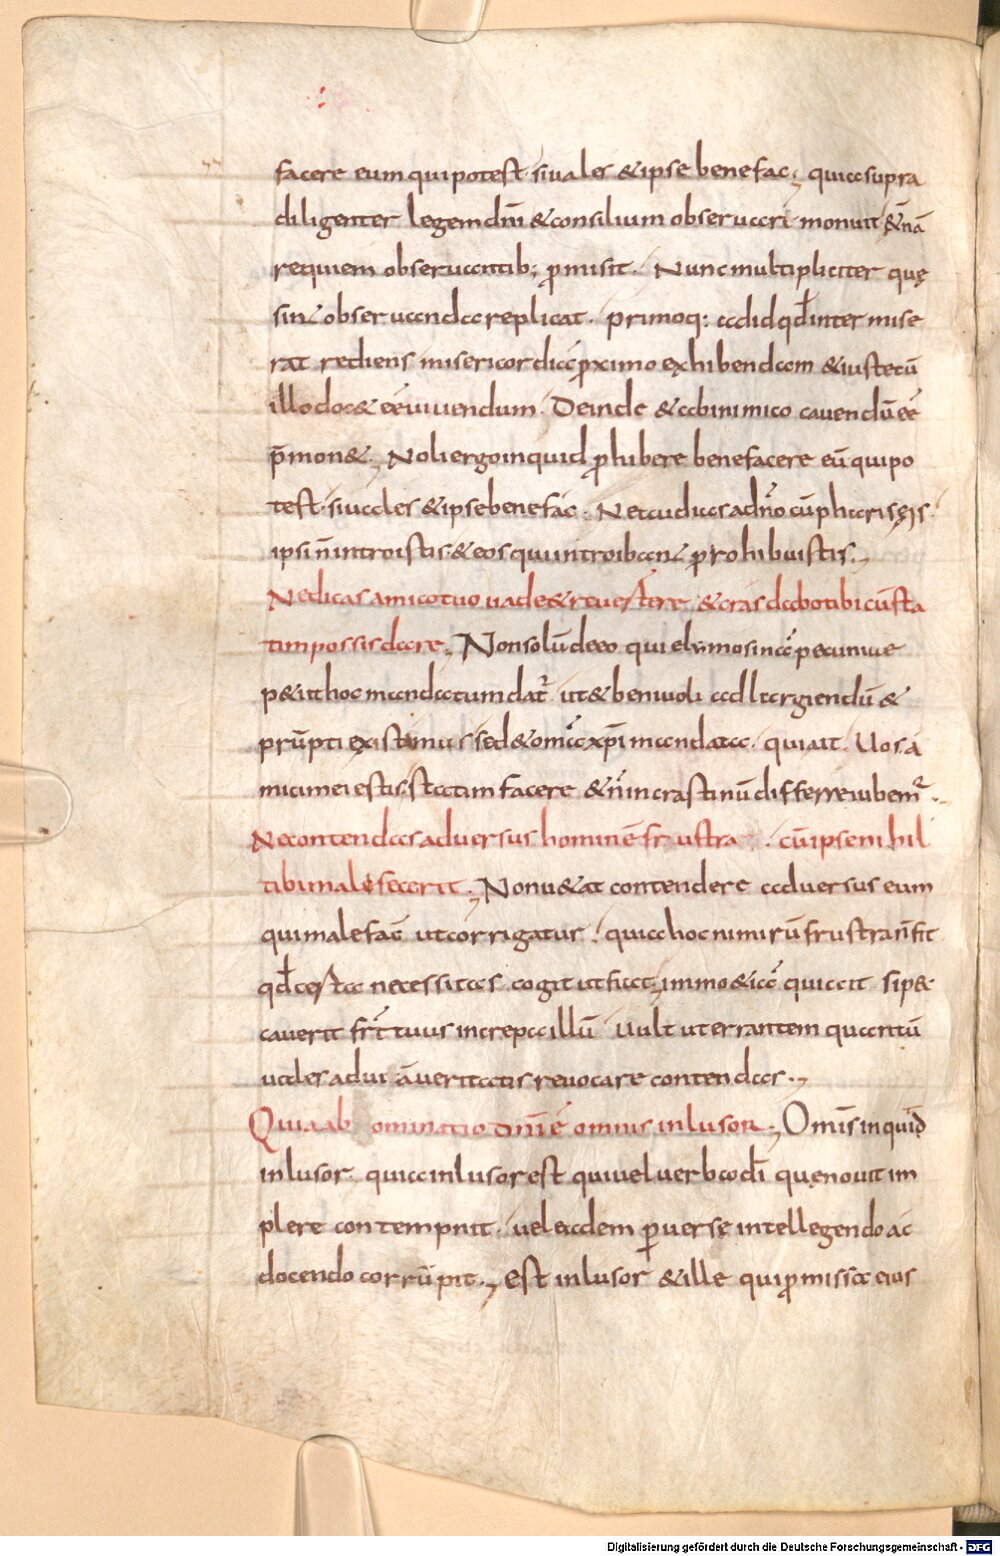 facere eum qui potest si uales & ipse bene fac; quia supra
diligenter legem dn̄i & consilium obseruari monuit & n̄am
requiem obseruantib; ꝓmisit. Nunc multipliciter quę
sint obseruanda replicat. primoq: addid qd̄ inter mise
rat rediens misericordiā ꝓximo exhibendam & iuste cū
illo doc& ēē uiuendum. Deinde & ab inimico cauendū ēē
p̄mon&. Noli ergo inquid ꝓhibere benefacere eū qui po
test. si uales & ipse bene fac. Ne audias ad n̄o cū pharisęis.
ipsi n̄ introistis & eos qui introibant prohibuistis.
Ne dicas amico tuo uade & reuertere & cras dabo tibi cū sta
tim possis dare. Non solū deeo qui elymosinā pecuniue
p&it hoc mandatum dat̄ ut & beniuoli ad largiendū &
prūpti existamus sed & om̄a xp̄i mandata. quia ait. Uos a
mici mei estis. statim facere & n̄ in crastinū differre iubem̄.
Ne contendas aduersus hominē frustra. cū ipse nihil
tibi male fecerit. Non u&at contendere aduersus eum
qui male fac̄ ut corrigatur. quia hoc nimirū frustra n̄ fit
qd̄ certa necessitas cogit ut fiat. immo & iā qui ait si p&
cauerit fr̄ tuus increpa illū Uult ut errantem quantū
uales ad uiā ueritatis reuocare contendas.
Quia abominatio dn̄i ē omnis inlusor. Omīs inquid
inlusor. quia inlusor est qui uel uerba dī quę nouit im
plere contempnit. uel eadem ꝑuersę intellegendo ac
docendo corrūpit. Est inlusor & ille qui ꝓmissa eius
Digitalisierung gefördert durch die Deutsche Forschungsgemeinschaft - DFG